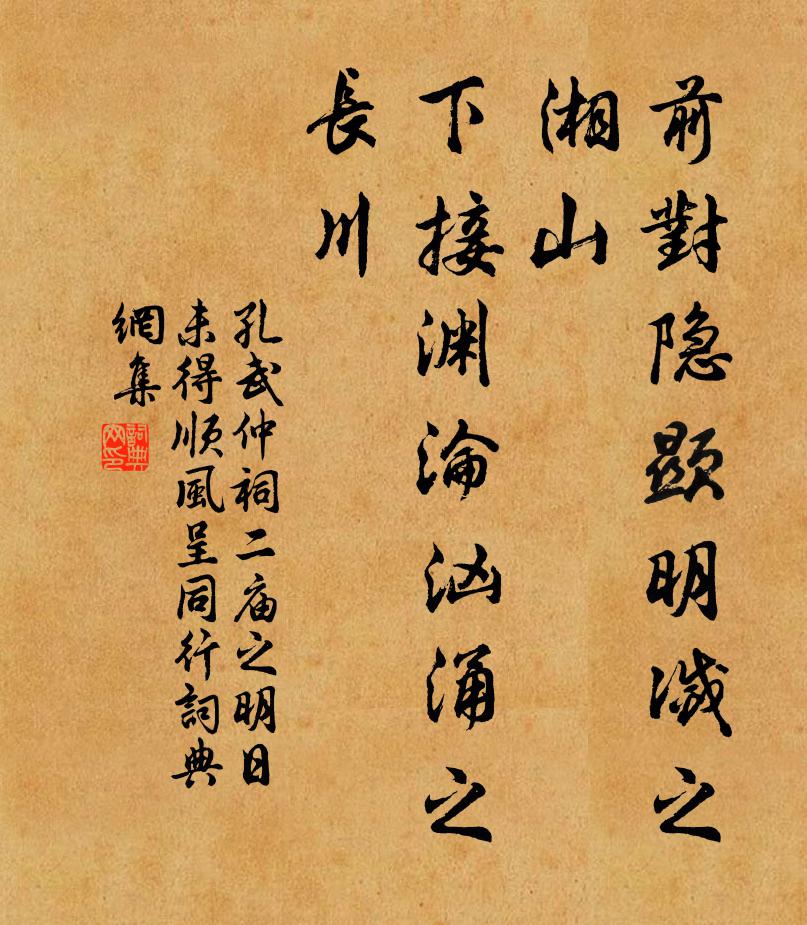 前對隐顯明滅之
湘山
下接渊淪汹涌之
長川
孔武仲祠二庙之明日
未得順風呈同行詞典
網集
詞典
网印